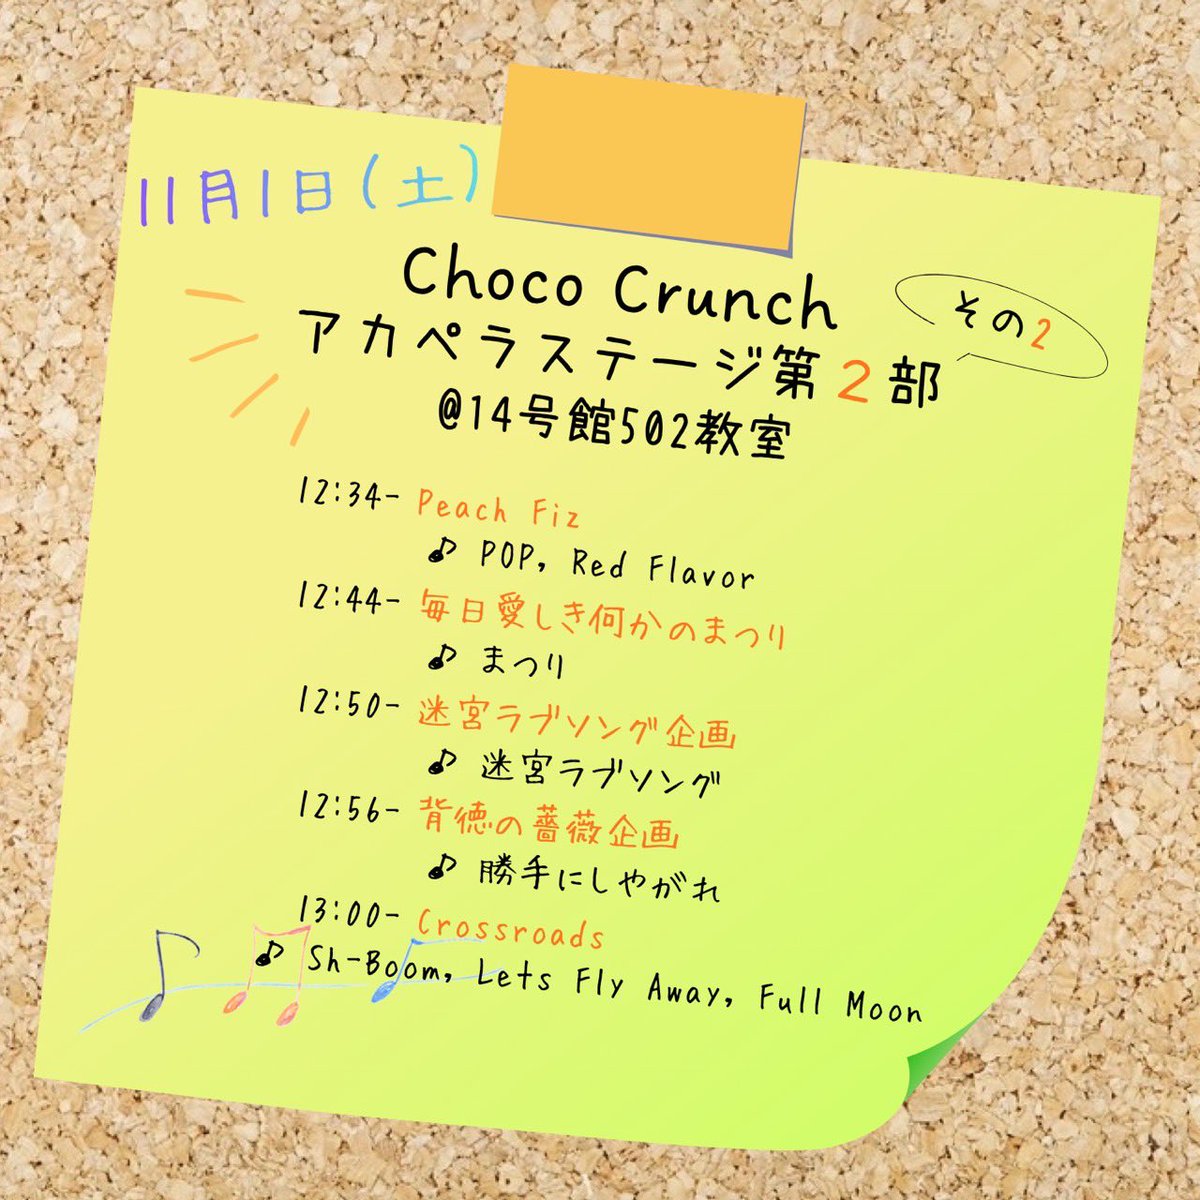 11月1日(土)
Choco Crunch
アカペラステージ第2部
その2
@14号館502教室
12:34- Peach Fiz
POP, Red Flavor
12:44- 毎日愛しき何かのまつり
まつり
12:50- 迷宮ラブソング企画
迷宮ラブソング
12:56- 背徳の薔薇企画
勝手にしやがれ
13:00- Crossroads
Sh-Boom, Lets Fly Away, Full Moon